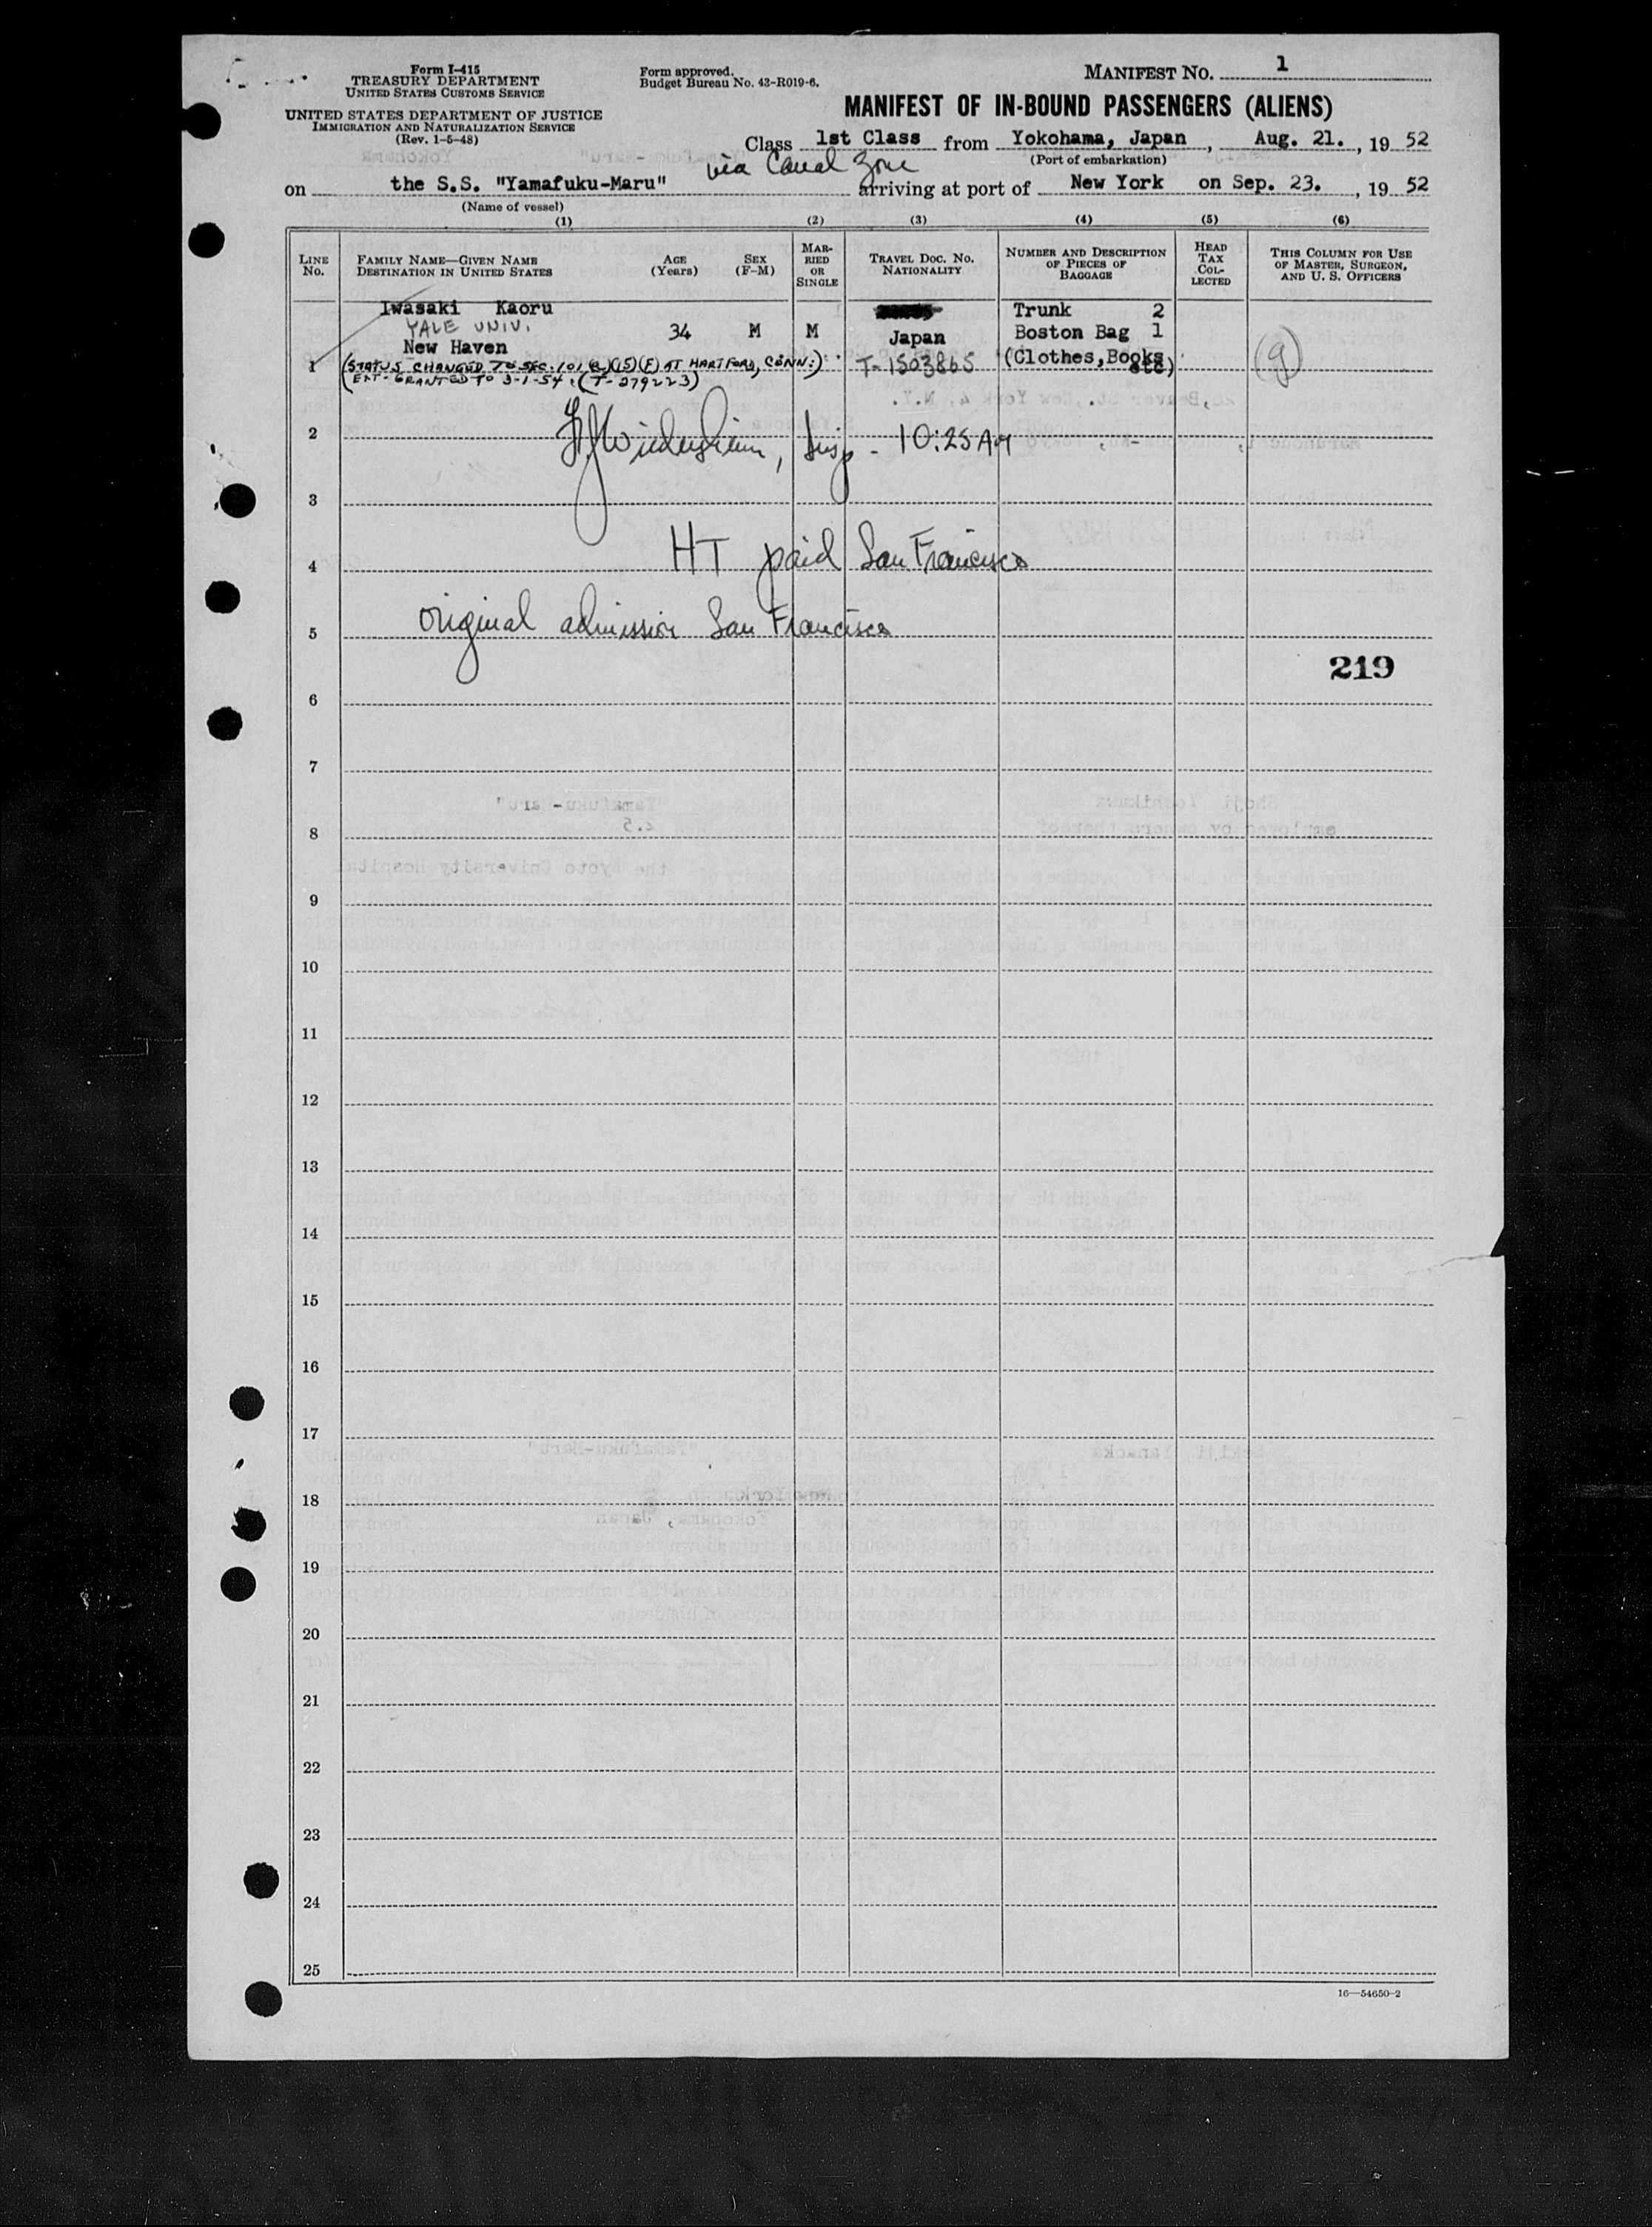 Form I-415
TREASURY DEPARTMENT
UNITED STATES CUSTOMS SERVICE
UNITED STATES DEPARTMENT OF JUSTICE
IMMIGRATION AND NATURALIZATION SERVICE
(Rev. 1-5-48)
Form approved.
Budget Bureau No. 43-R019-6.
MANIFEST NO. 1
MANIFEST OF IN-BOUND PASSENGERS (ALIENS)
Class 1st Class from Yokohama, Japan, Aug. 21., 19 52
(Port of embarkation)
via Canal Zone
on the S.S. "Yamafuku-Maru" arriving at port of New York on Sep. 23., 19 52
(Name of vessel)
(1) (2) (3) (4) (5) (6)
LINE NO.
FAMILY NAME—GIVEN NAME
DESTINATION IN UNITED STATES
AGE (Years)
SEX (F-M)
MARRIED OR SINGLE
TRAVEL DOC. NO.
NATIONALITY
NUMBER AND DESCRIPTION OF PIECES OF BAGGAGE
HEAD TAX COLLECTED
THIS COLUMN FOR USE OF MASTER, SURGEON, AND U. S. OFFICERS
Iwasaki Kaoru Trunk 2
YALE UNIV. 34 M M Japan Boston Bag 1
New Haven T-1503865 (Clothes, Books etc) (g)
1 (STATUS CHANGED TO SEC. 101(a)(15)(F) AT HARTFORD, CONN.)
(EXT-GRANTED TO 3-1-54. (T-279223)
2 Insp - 10:25 AM
3
4 HT paid San Francisco
5 original admission San Francisco
219
6
7
8
9
10
11
12
13
14
15
16
17
18
19
20
21
22
23
24
25
16—54650-2